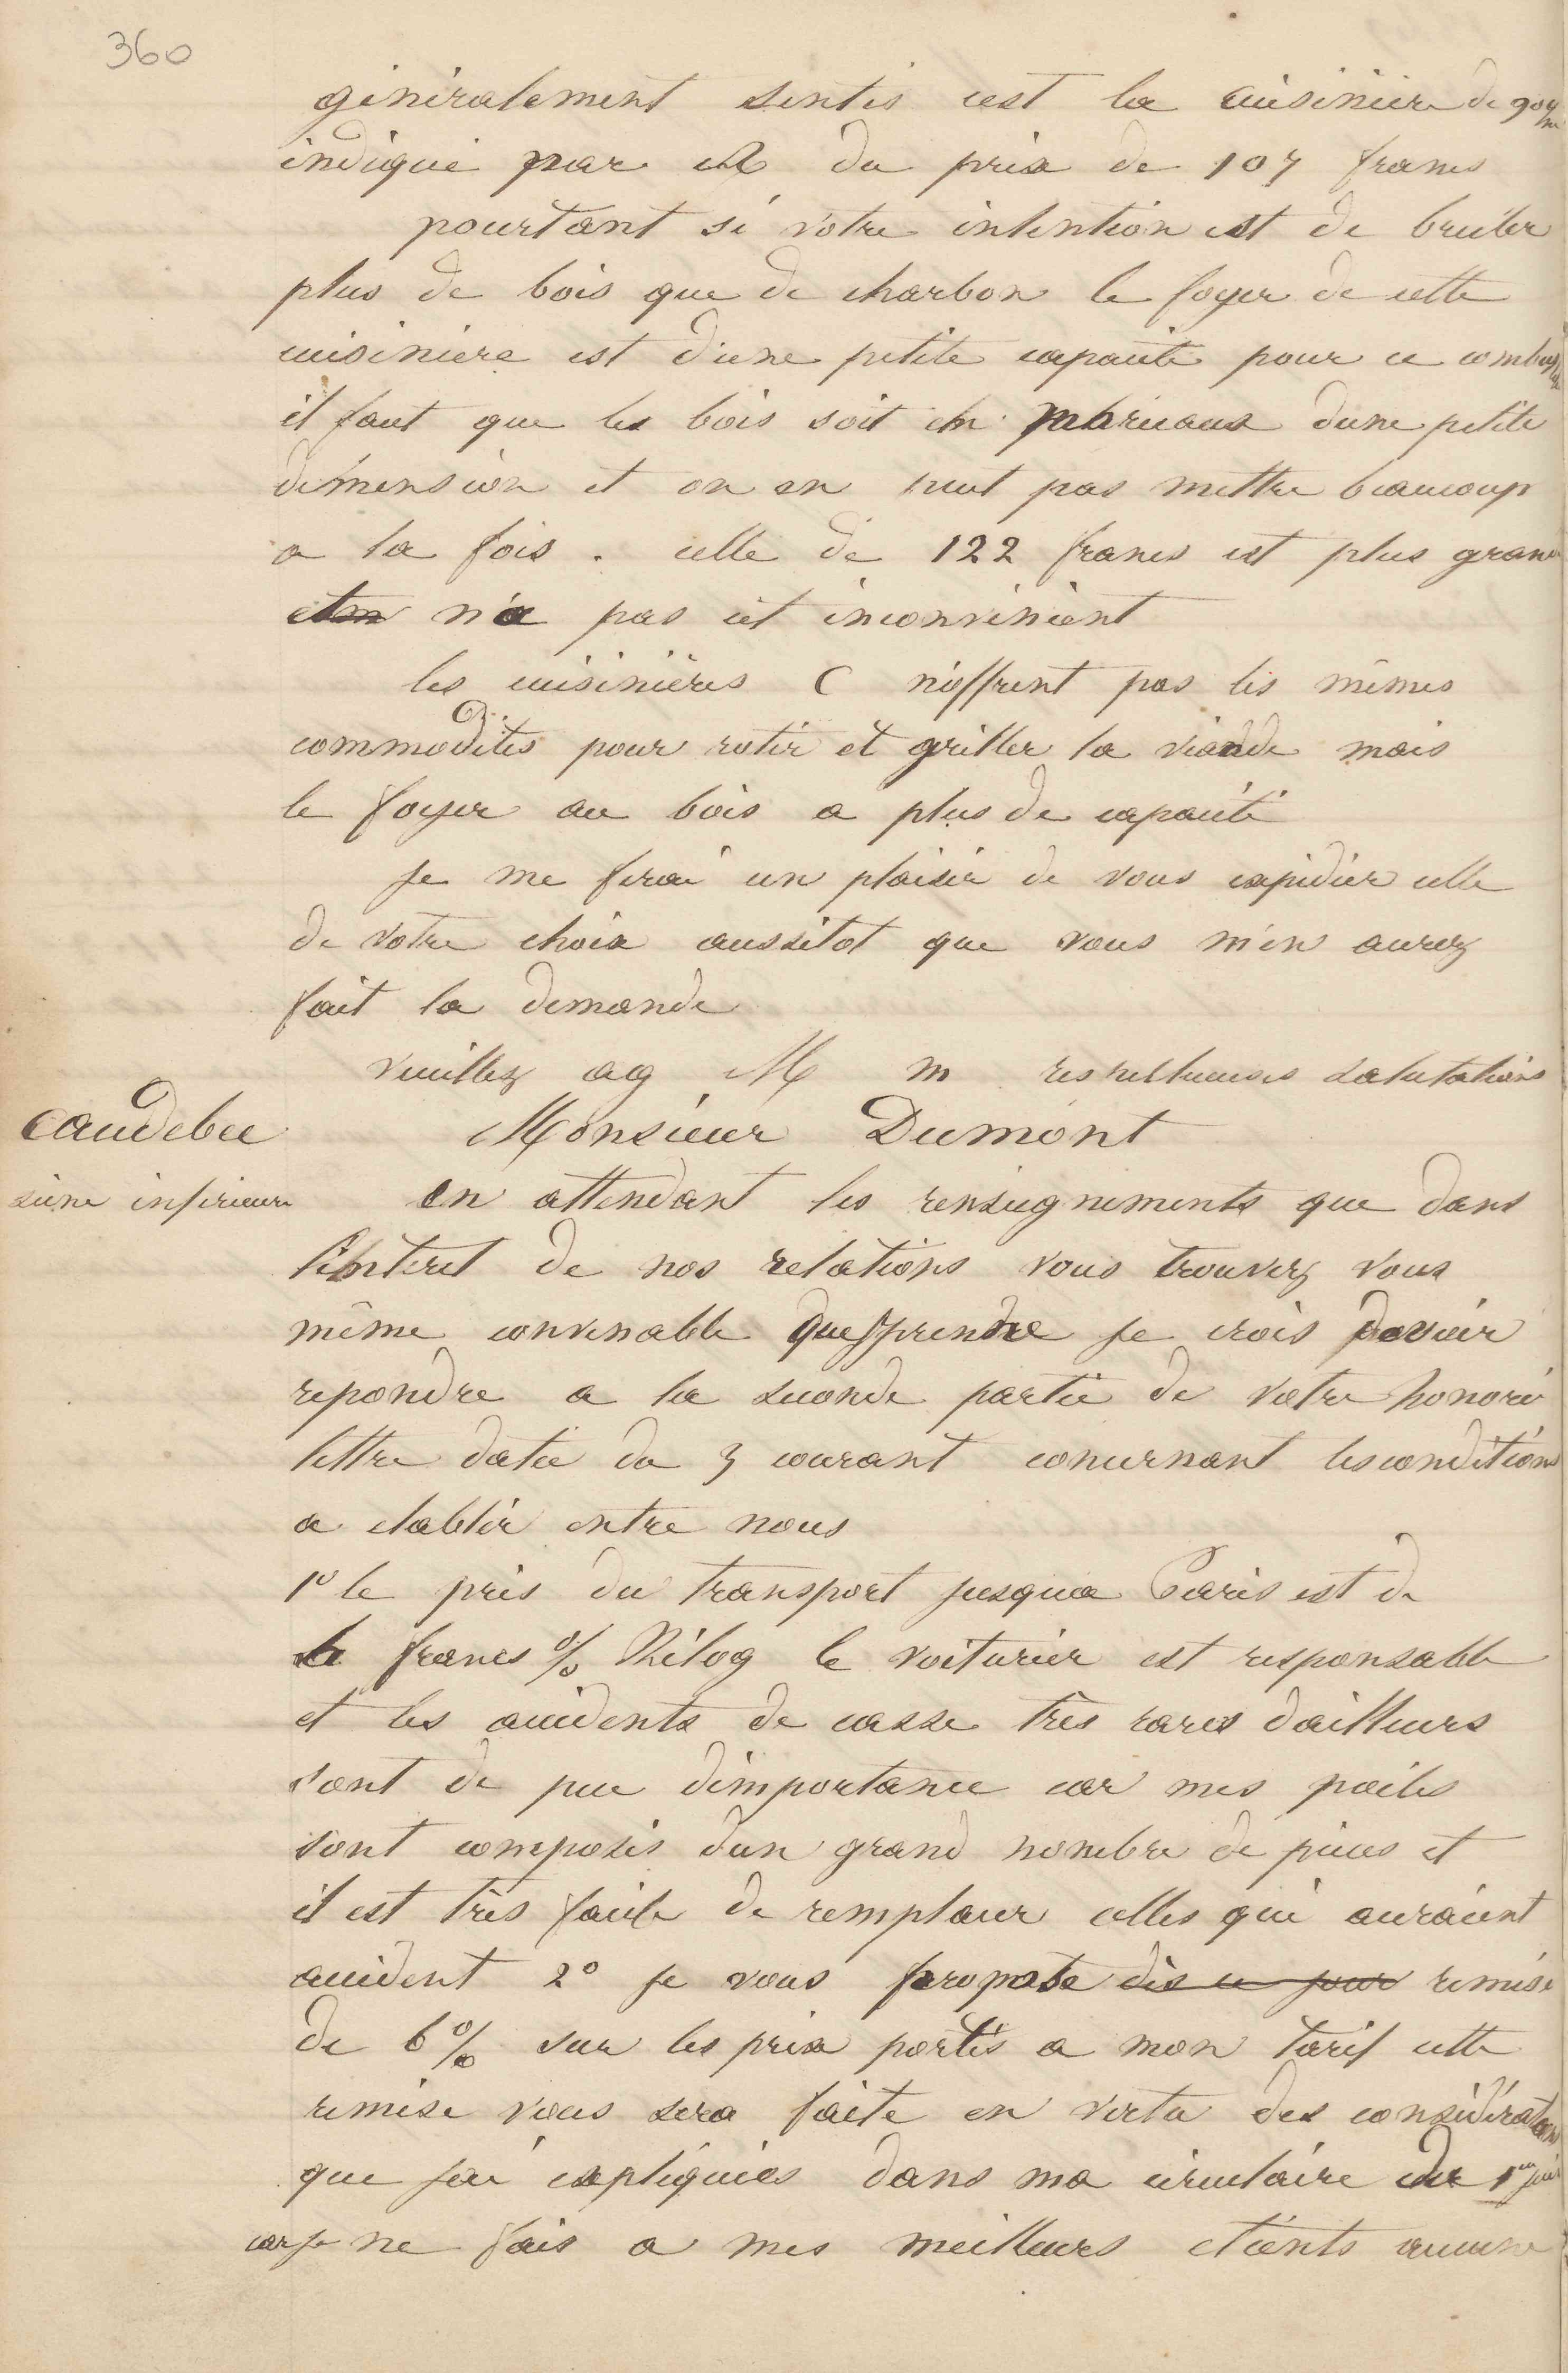 360
généralement sentis cest la cuisinière de 90 c/m
indiqué par A du prix de 107 francs
pourtant si votre intention est de bruler
plus de bois que de charbon le foyer de cette
cuisiniere est d'une petite capacité pour ce
il faut que les bois soit en morceaux dune petite
dimension et on en peut pas mettre beaucoup
a la fois . celle de 122 francs est plus grande
n'a pas cet inconvenient
les cuisinières C n'offrent pas les mêmes
commodités pour rotir et griller la viande mais
le foyer au bois a plus de capacité
je me ferai un plaisir de vous expédier celle
de votre choix aussitot que vous m'en aurez
fait la demande
veuillez ag M m respectueuses salutations
Caudebec
Seine inferieure
Monsieur Dumont
en attendant les renseignements que dans
l'interet de nos relations vous trouvez vous
même convenable que prendre je crois devoir
repondre a la seconde partie de votre honoré
lettre datée du 3 courant concernant les conditions
a etablir entre nous
1º le prix du transport jusqua Paris est de
francs % Kilog le voiturier est responsable
et les accidents de casse très rares dailleurs
sont de peu dimportance car mes poêles
sont composés dun grand nombre de pieces et
il est très facile de remplacer celles qui auraient
accident 2º je vous propose dès ce jour remise
de 6 % sur les prix portés a mon tarif cette
remise vous sera faite en vertu des considérations
que jai expliquées dans ma circulaire du 1er
car je ne fais a mes meilleurs clients aucune